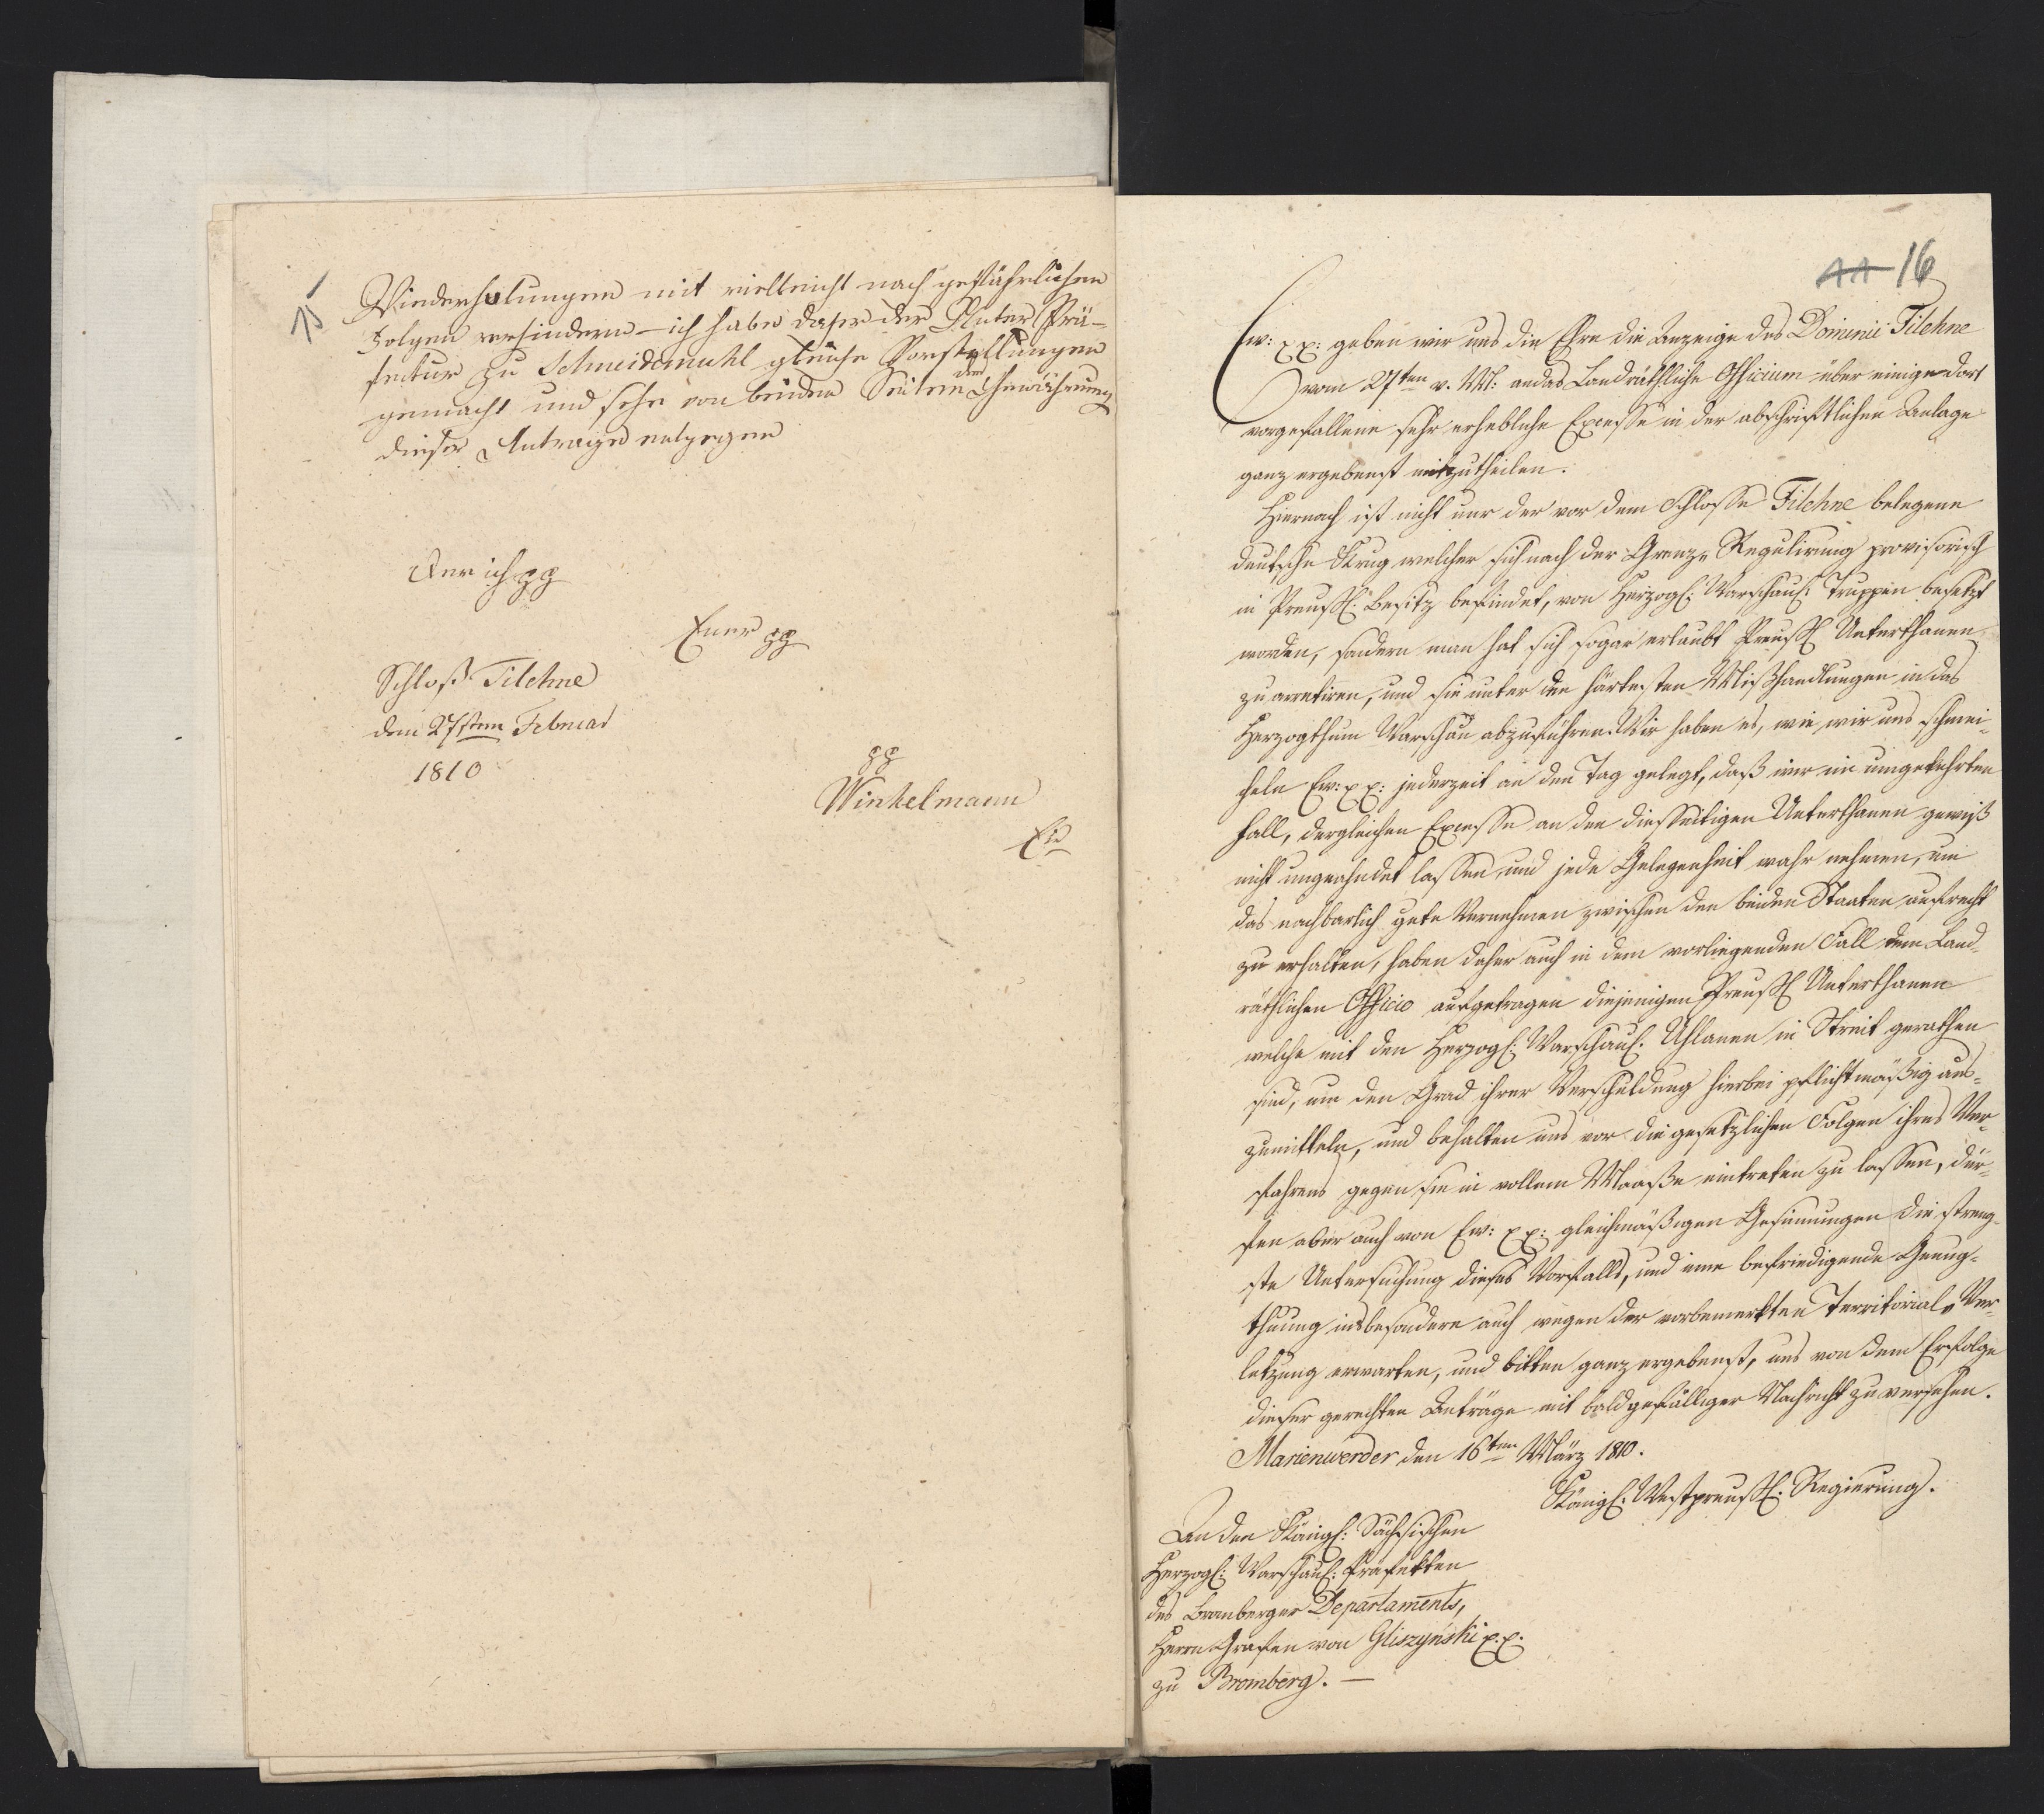 15
Wiederholungen mit vielleicht noch gefährlichern
Folgen verhindern – ich habe daher der Unter Prä-
fectur zu Schneidemuhl gleiche Vorstellungen
gemacht und sehe von beiden Seiten der Gewährung
dieser Antraege entgegen
Der ich pp
Euer pp
Schloß Filehne
den 27sten Februar
1810
pp
Winkelmann
Ew
11 16
Ew: pp: geben wir uns die Ehre die Anzeige des Dominii Filehne
vom 27ten v. M: an das Landräthliche Officium über einige dort
vorgefallene sehr erhebliche Excesse in der abschriftlichen Anlage
ganz ergebenst mitzutheilen.
Hiernach ist nicht nur der vor dem Schlosse Filehne belegene
deutsche Krug welcher sich nach der Grenz- Regulirung provisorisch
in Preußl: Besitz befindet, von Herzogl: Warschaul: Truppen besetzt
worden, sondern man hat sich sogar erlaubt Preußl Unterthanen
zu arretiren, und sie unter den härtesten Mißhandlungen in das
Herzogthum Warschau abzuführen. Wir haben es, wie wir uns schmei-
cheln Ew: pp: jederzeit an den Tag gelegt, daß wir im umgekehrten
Fall, dergleichen Excesse an den diesseitigen Unterthanen gewiß
nicht ungeahndet lassen, und jede Gelegenheit wahr nehmen, um
das nachbarlich gute Vernehmen zwischen den beiden Staaten aufrecht
zu erhalten, haben daher auch in dem vorliegenden Fall dem Land-
räthlichen Officio aufgetragen diejenigen Preußl Unterthanen
welche mit den Herzogl: Warschaul: Uhlanen in Streit gerathen
sind, um den Grad ihrer Verschuldung hierbei pflichtmäßig aus-
zumitteln, und behalten uns vor die gesetzlichen Folgen ihres Ver-
fahrens gegen sie in vollem Maaße eintreten zu lassen, dür-
fen aber auch von Ew: pp: gleichmäßigen Gesinnungen die streng-
ste Untersuchung dieses Vorfalls, und eine befriedigende Genug-
thuung insbesondere auch wegen der vorbemerkten Territorial- Ver-
letzung erwarten, und bitten ganz ergebenst, uns von dem Erfolge
dieser gerechten Anträge mit baldgefälliger Nachricht zu versehen.
Marienwerder den 16ten März 1810.
Königl: Westpreußl: Regierung.
An den Königl: Sächsischen
Herzogl: Warschaul: Präfekten
des Bromberger Departaments,
Herrn Grafen von Gliszyński p.p.
zu Bromberg. —